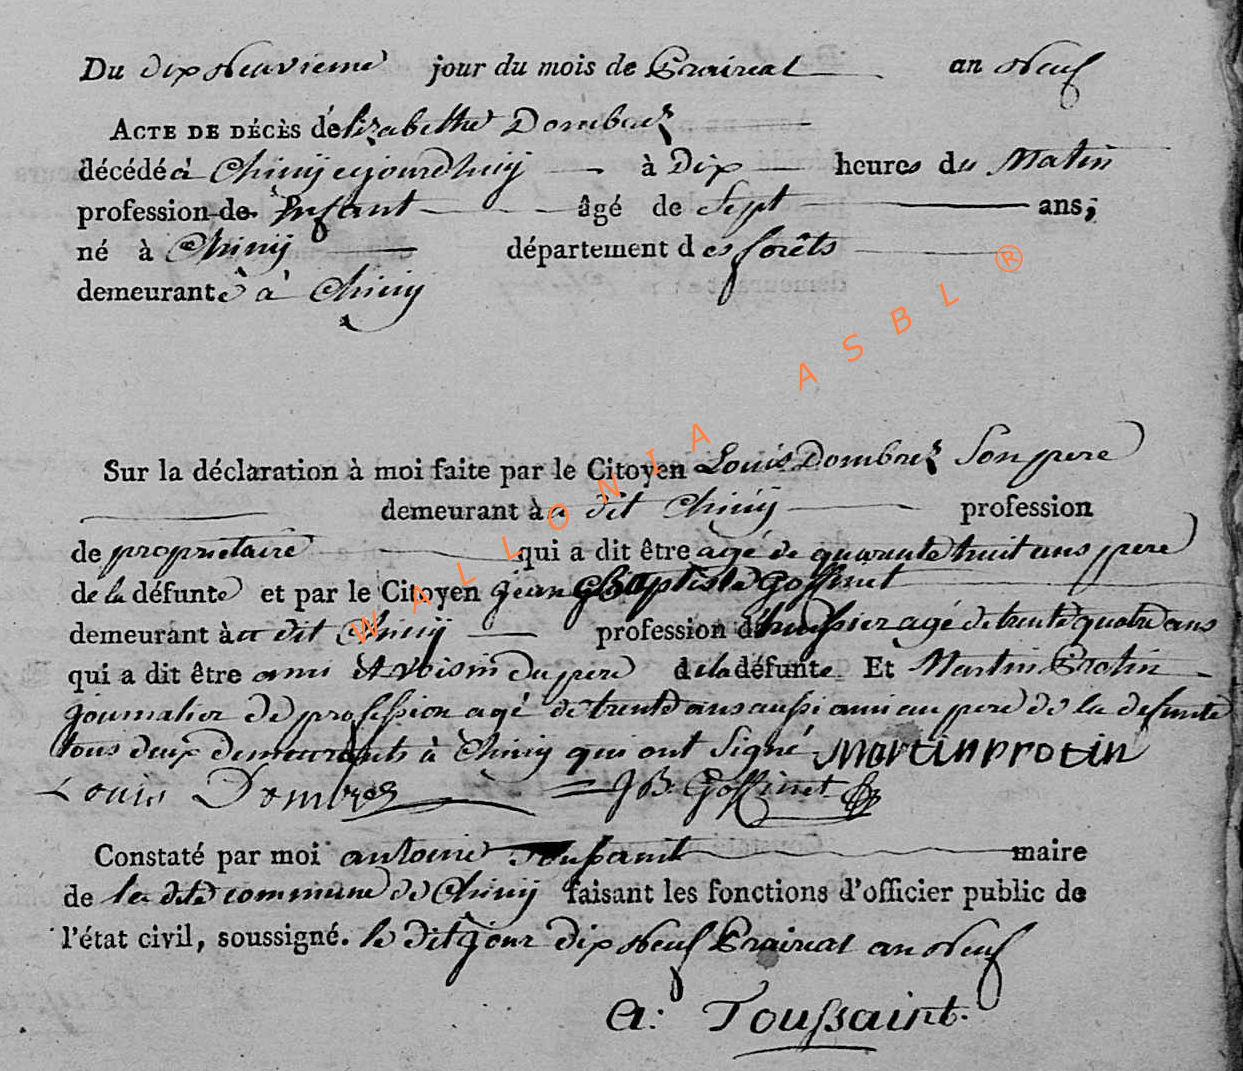 Du dix neuvieme jour du mois de Prairial an neuf
ACTE DE DÉCÈS d'élizabethe Dombrez
décédé à Chiny ajourdhuy à Dix heures du Matin
profession de Enfant âgé de Sept ans,
né à Chiny département des forêts
demeurante à Chiny
Sur la déclaration à moi faite par le Citoyen Louis Dombrez Son pere
demeurant à a dit Chiny profession
de proprietaire qui a dit être agé de quarante huit ans pere
de la défunte et par le Citoyen jean Baptiste Goffinet
demeurant à a dit Chiny profession d'huissier agé de trente quatre ans
qui a dit être ami et voisin du pere de la défunte Et Martin Protin
journalier de profession agé de trente ans aussi ami au pere de la defunte
tous deux demeurants à Chiny qui ont Signé Martin protin
Louis Dombres J B. Goffinet
Constaté par moi antoine Toussaint maire
de la dite commune de Chiny faisant les fonctions d'officier public de
l'état civil, soussigné. le dit jour dix neuf Prairial an neuf
A: Toussaint.
WALLONIA ASBL ®